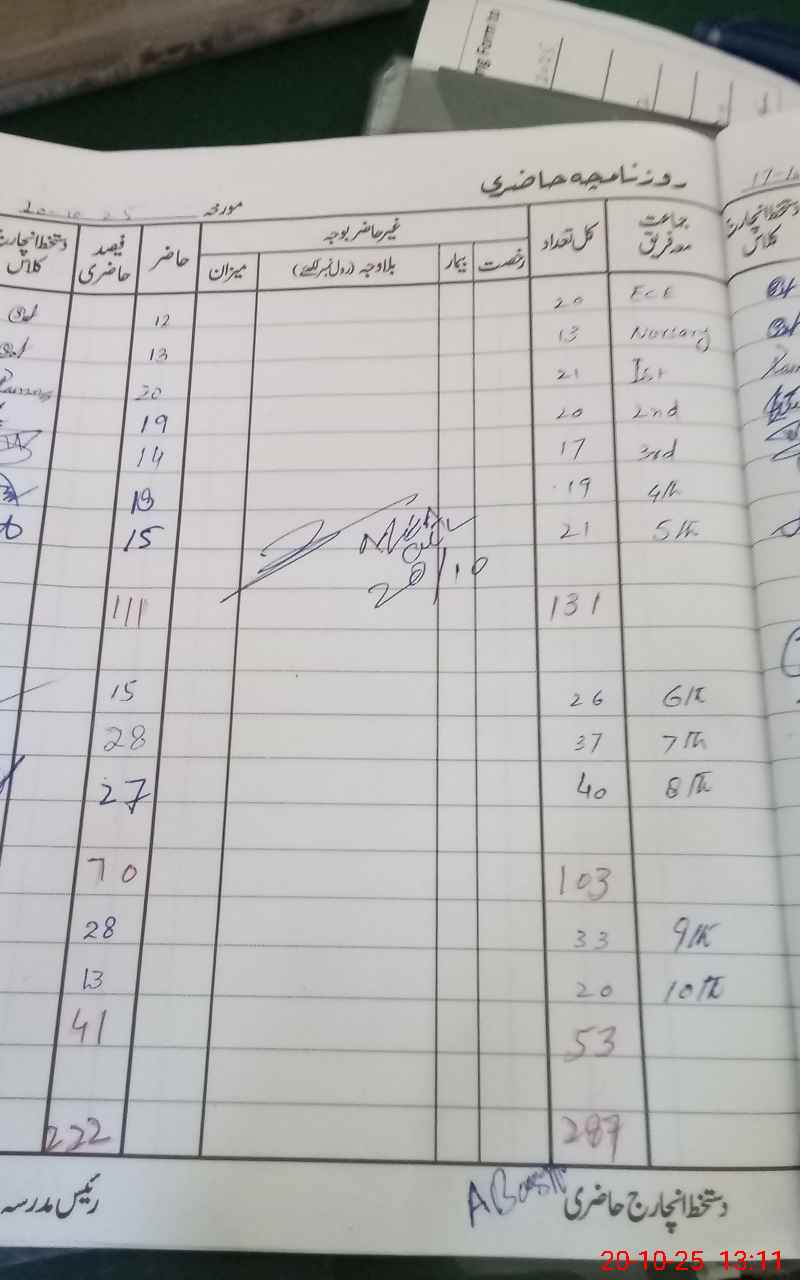 روزنامچہ حاضری
مورخہ 20-10-25
جماعت معہ فریق کل تعداد غیر حاضر بوجہ حاضر فیصد حاضری دستخط انچارج کلاس
رخصت بیمار بلاوجہ (رول نمبر لکھئے) میزان
ECE 20 12
Nursary 13 13
Ist 21 20
2nd 20 19
3rd 17 14
4th 19 18
5th 21 15
20/10
131 111
6th 26 15
7th 37 28
8th 40 27
103 70
9th 33 28
10th 20 13
53 41
287 222
دستخط انچارج حاضری
رئیس مدرسہ
دستخط انچارج کلاس
20-10-25 13:11